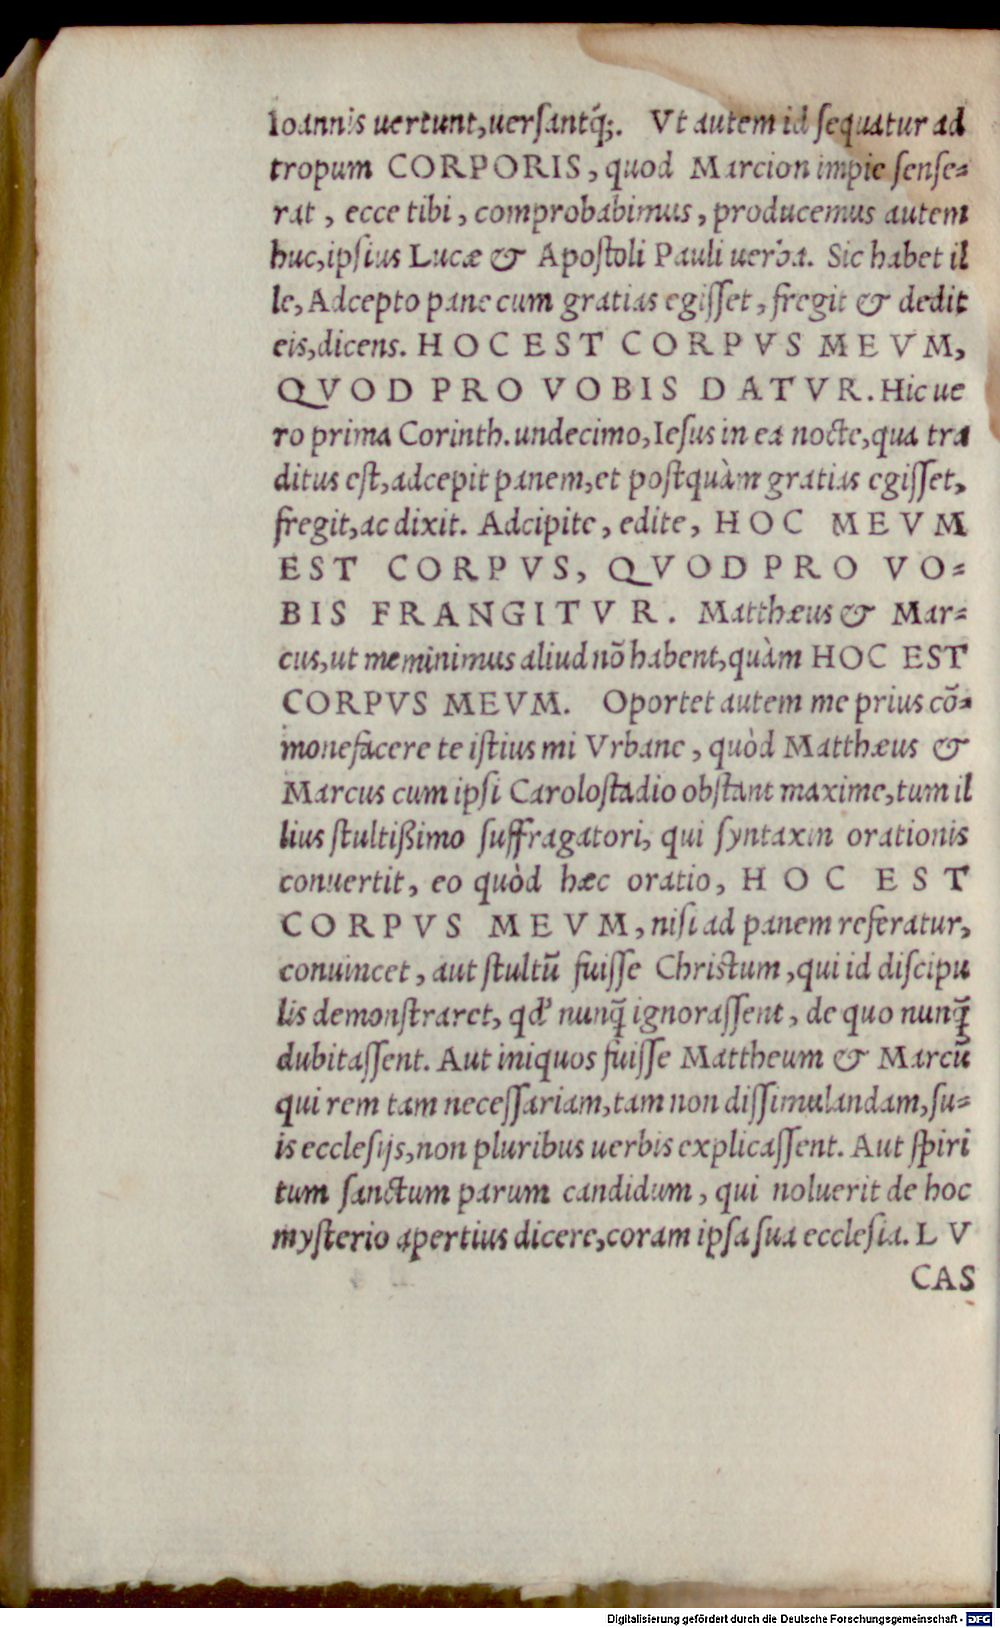 Ioannis uertunt, uersantq́;. Vt autem id sequatur ad
tropum CORPORIS, quod Marcion impie sense-
rat, ecce tibi, comprobabimus, producemus autem
huc, ipsius Lucæ & Apostoli Pauli uerba. Sic habet il
le, Adcepto pane cum gratias egisset, fregit & dedit
eis, dicens. HOC EST CORPVS MEVM,
QVOD PRO VOBIS DATVR. Hic ue
ro prima Corinth. undecimo, Iesus in ea nocte, qua tra
ditus est, adcepit panem, et postquàm gratias egisset,
fregit, ac dixit. Adcipite, edite, HOC MEVM
EST CORPVS, QVOD PRO VO-
BIS FRANGITVR. Matthæus & Mar-
cus, ut meminimus aliud nõ habent, quàm HOC EST
CORPVS MEVM. Oportet autem me prius cõ-
monefacere te istius mi Vrbane, quòd Matthæus &
Marcus cum ipsi Carolostadio obstant maxime, tum il
lius stultißimo suffragatori, qui syntaxin orationis
conuertit, eo quòd hæc oratio, HOC EST
CORPVS MEVM, nisi ad panem referatur,
conuincet, aut stultũ fuisse Christum, qui id discipu
lis demonstraret, qd' nunq̃ ignorassent, de quo nunq̃
dubitassent. Aut iniquos fuisse Mattheum & Marcũ
qui rem tam necessariam, tam non dissimulandam, su-
is ecclesijs, non pluribus uerbis explicassent. Aut spiri
tum sanctum parum candidum, qui noluerit de hoc
mysterio apertius dicere, coram ipsa sua ecclesia. LV
CAS
Digitalisierung gefördert durch die Deutsche Forschungsgemeinschaft - DFG